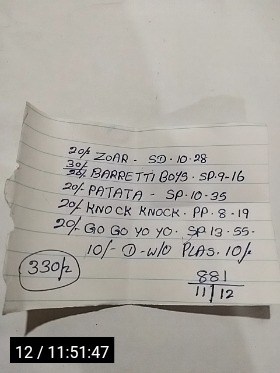 20/- ZOAR - SD-10-28
30/- BARRETTI BOYS. SP.9-16
20/- PATATA - SP.10-35
20/- KNOCK KNOCK. PP. 8-19
20/- GO GO YO YO. SP 13-55.
10/- D-W/O PLAS. 10/-
330/-
881
11/12
12 / 11:51:47